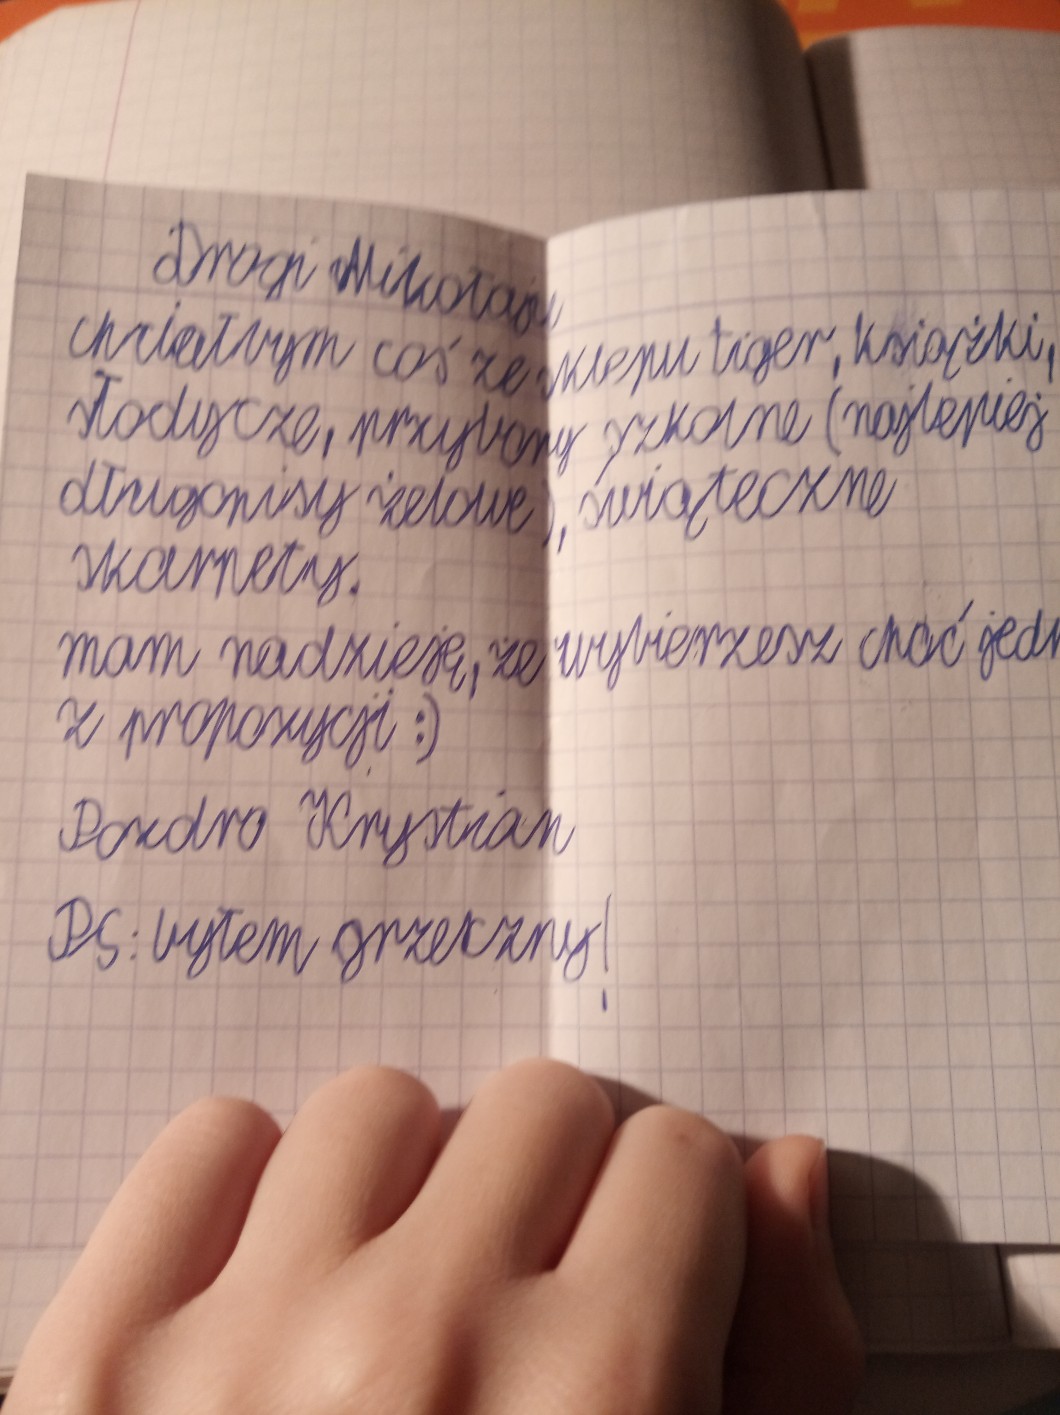 Drogi Mikołaju
chciałbym coś ze sklepu tiger, książki,
słodycze, przybory szkolne (najlepiej
długopisy żelowe), świąteczne
skarpety.
mam nadzieję, że wybierzesz choć jedn
z propozycji :)
Pozdro Krystian
PS: byłem grzeczny!